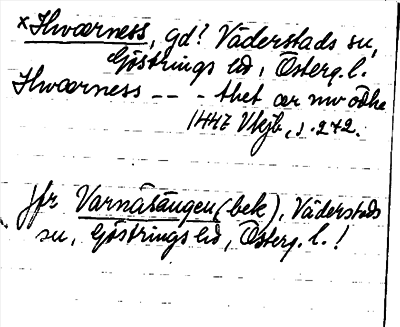 ×Hwærness, gd? Väderstads sn,
Göstrings hd, Österg. l.
Hwærness - - - thet ær nw ødhe
1447 Vkjb, s. 272.
Jfr Varnäsängen (bek), Väderstads
sn, Göstrings hd, Österg. l.!